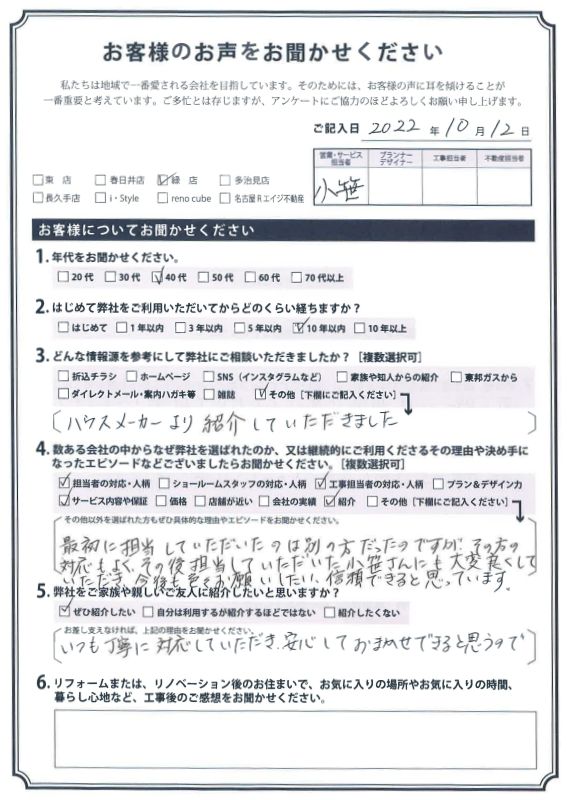 お客様のお声をお聞かせください
私たちは地域で一番愛される会社を目指しています。そのためには、お客様の声に耳を傾けることが
一番重要と考えています。ご多忙とは存じますが、アンケートにご協力のほどよろしくお願い申し上げます。
ご記入日 2022 年 10 月 12 日
営業・サービス担当者 プランナーデザイナー 工事担当者 不動産担当者
小笹
□東 店 □春日井店 ☑緑 店 □多治見店
□長久手店 □i・Style □reno cube □名古屋Rエイジ不動産
お客様についてお聞かせください
1. 年代をお聞かせください。
□20代 □30代 ☑40代 □50代 □60代 □70代以上
2. はじめて弊社をご利用いただいてからどのくらい経ちますか?
□はじめて □1年以内 □3年以内 □5年以内 ☑10年以内 □10年以上
3. どんな情報源を参考にして弊社にご相談いただきましたか?[複数選択可]
□折込チラシ □ホームページ □SNS(インスタグラムなど) □家族や知人からの紹介 □東邦ガスから
□ダイレクトメール・案内ハガキ等 □雑誌 ☑その他[下欄にご記入ください]
ハウスメーカーより紹介していただきました
4. 数ある会社の中からなぜ弊社を選ばれたのか、又は継続的にご利用くださるその理由や決め手に
なったエピソードなどございましたらお聞かせください。[複数選択可]
☑担当者の対応・人柄 □ショールームスタッフの対応・人柄 ☑工事担当者の対応・人柄 □プラン&デザイン力
☑サービス内容や保証 □価格 □店舗が近い □会社の実績 ☑紹介 □その他[下欄にご記入ください]
その他以外を選ばれた方もぜひ具体的な理由やエピソードをお聞かせください。
最初に担当していただいたのは別の方だったのですが、その方の
対応もよく、その後担当していただいた小笹さんにも大変良くして
いただき、今後もお願いしたい、信頼できると思っています。
5. 弊社をご家族や親しいご友人に紹介したいと思いますか?
☑ぜひ紹介したい □自分は利用するが紹介するほどではない □紹介したくない
お差し支えなければ、上記の理由をお聞かせください。
いつも丁寧に対応していただき、安心しておまかせできると思うので
6. リフォームまたは、リノベーション後のお住まいで、お気に入りの場所やお気に入りの時間、
暮らし心地など、工事後のご感想をお聞かせください。